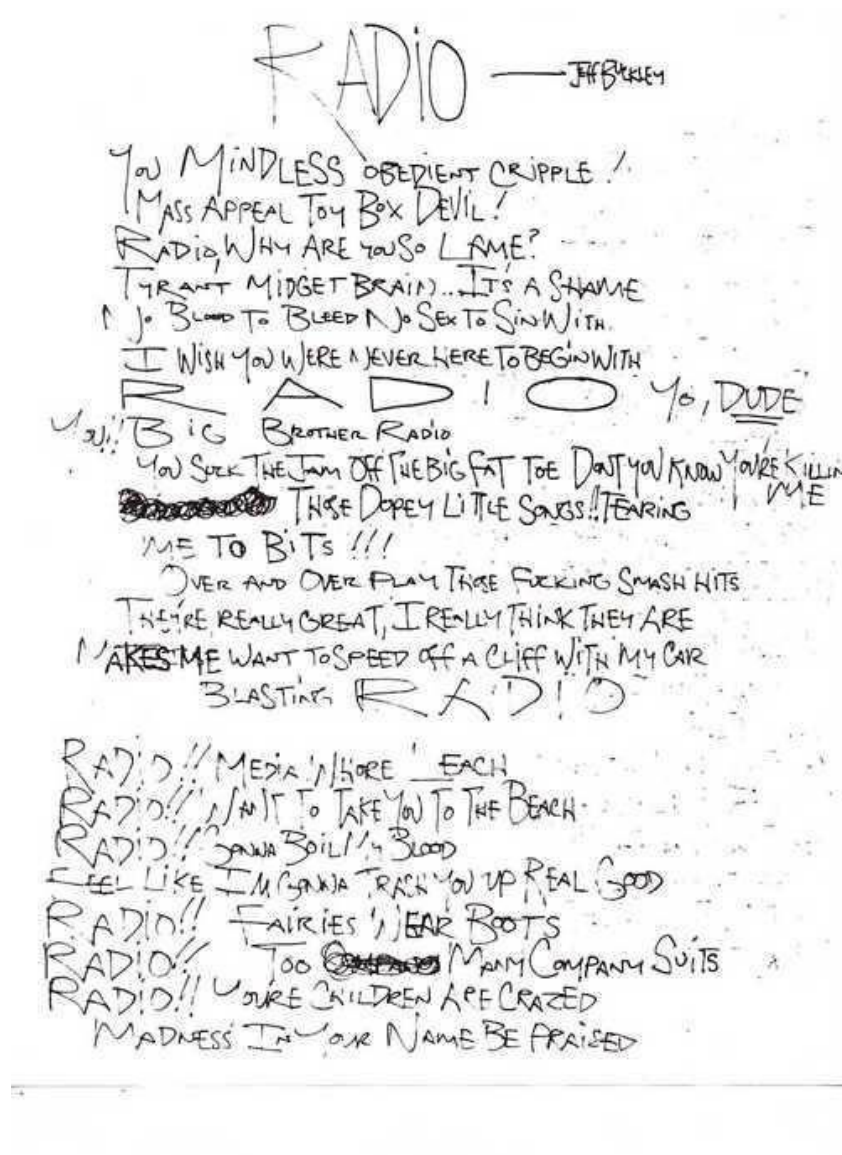 RADIO — JEFF BUCKLEY
YOU MINDLESS OBEDIENT CRIPPLE!
MASS APPEAL TOY BOX DEVIL!
RADIO, WHY ARE YOU SO LAME?
TYRANT MIDGET BRAIN... IT'S A SHAME
NO BLOOD TO BLEED NO SEX TO SIN WITH.
I WISH YOU WERE NEVER HERE TO BEGIN WITH
RADIO YO, DUDE
YOU!! BIG BROTHER RADIO
YOU SUCK THE JAM OFF THE BIG FAT TOE DON'T YOU KNOW YOU'RE KILLIN
ME
THOSE DOPEY LITTLE SONGS!! TEARING
ME TO BITS!!!
OVER AND OVER PLAY THOSE FUCKING SMASH HITS
THEY'RE REALLY GREAT, I REALLY THINK THEY ARE
MAKES ME WANT TO SPEED OFF A CLIFF WITH MY CAR
BLASTING RADIO
RADIO!! MEDIA WHORE LEACH
RADIO!! WANT TO TAKE YOU TO THE BEACH
RADIO!! GONNA BOIL MY BLOOD
FEEL LIKE I'M GONNA TRASH YOU UP REAL GOOD
RADIO!! FAIRIES WEAR BOOTS
RADIO!! TOO MANY COMPANY SUITS
RADIO!! YOU'RE CHILDREN ARE CRAZED
MADNESS IN YOUR NAME BE PRAISED